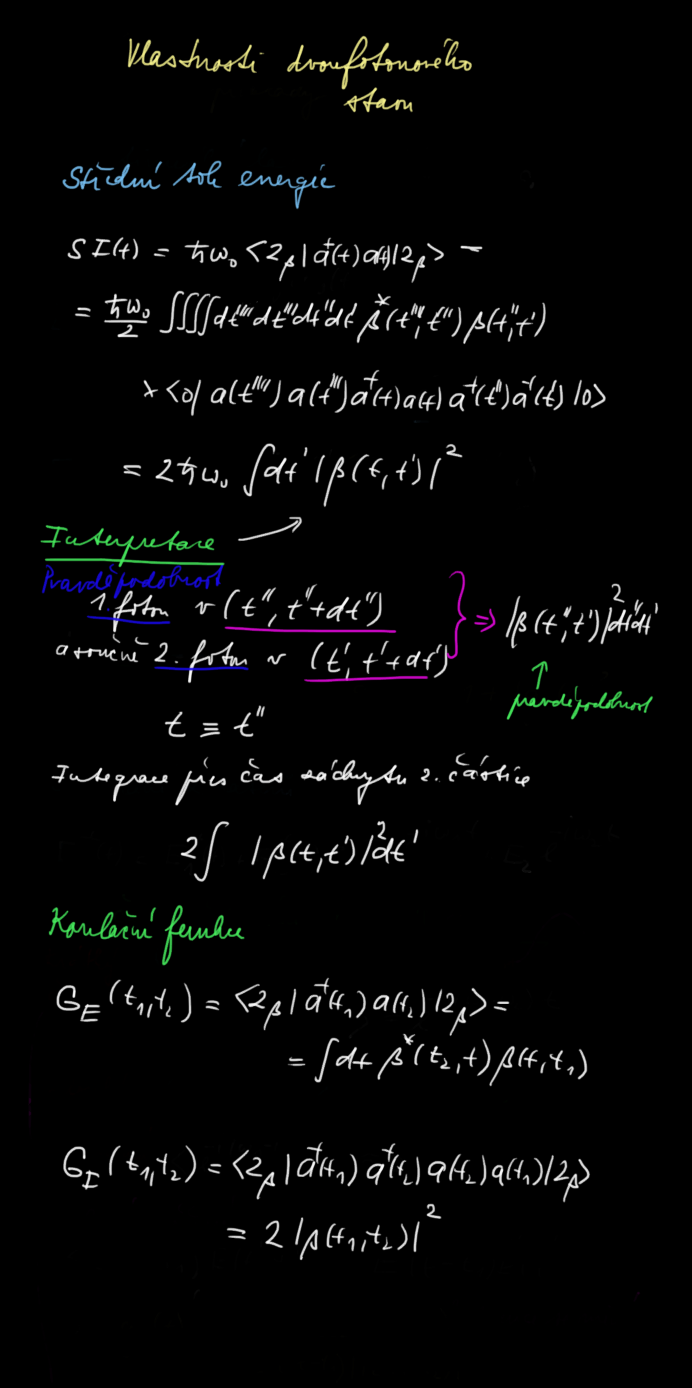 Vlastnosti dvoufotonového
stavu
Střední tok energie
S I(t) = ħω₀ <2_β| a⁺(t) a(t) |2_β> =
= ħω₀/2 ∫∫∫∫ dt'''' dt''' dt'' dt' β*(t'''', t''') β(t'', t')
× <0| a(t'''') a(t''') a⁺(t) a(t) a⁺(t'') a⁺(t') |0>
= 2ħω₀ ∫dt' |β(t, t')|²
Interpretace
Pravděpodobnost
1. foton v (t'', t''+dt'') } ⇒ |β(t'', t')|² dt'' dt'
a současně 2. foton v (t', t'+dt')
pravděpodobnost
t ≡ t''
Integrace přes čas záchytu 2. částice
2∫ |β(t, t')|² dt'
Korelační funkce
G_E (t₁, t₂) = <2_β| a⁺(t₁) a(t₂) |2_β> =
= ∫dt β*(t₂, t) β(t, t₁)
G_I (t₁, t₂) = <2_β| a⁺(t₁) a⁺(t₂) a(t₂) a(t₁) |2_β>
= 2 |β(t₁, t₂)|²